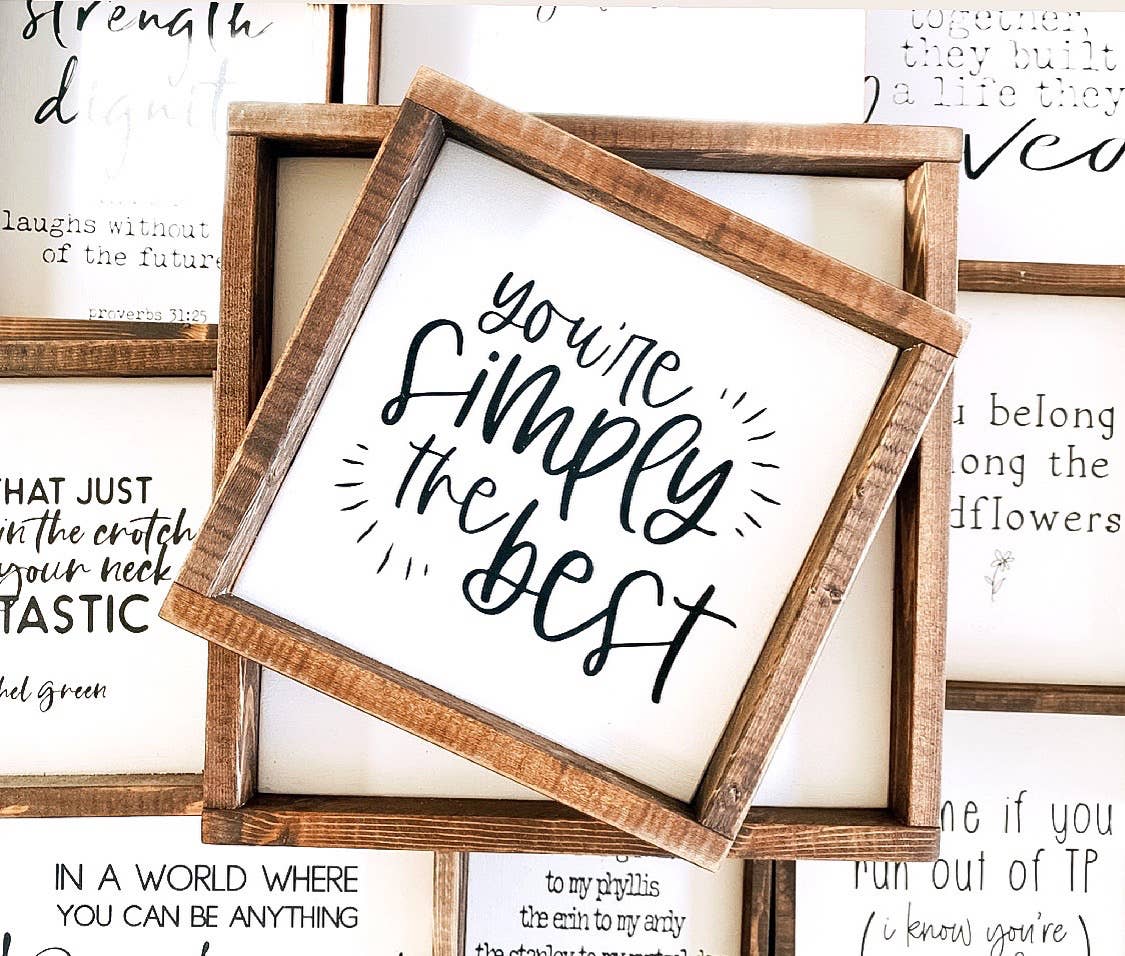 strength
dignity
laughs without
of the future
proverbs 31:25
together,
they built
a life they
loved
you're
simply
the best
THAT JUST
in the crotch
your neck
TASTIC
hel green
u belong
ong the
dflowers
IN A WORLD WHERE
YOU CAN BE ANYTHING
to my phyllis
the erin to my andy
the stanley to my
me if you
run out of TP
(i know you're)